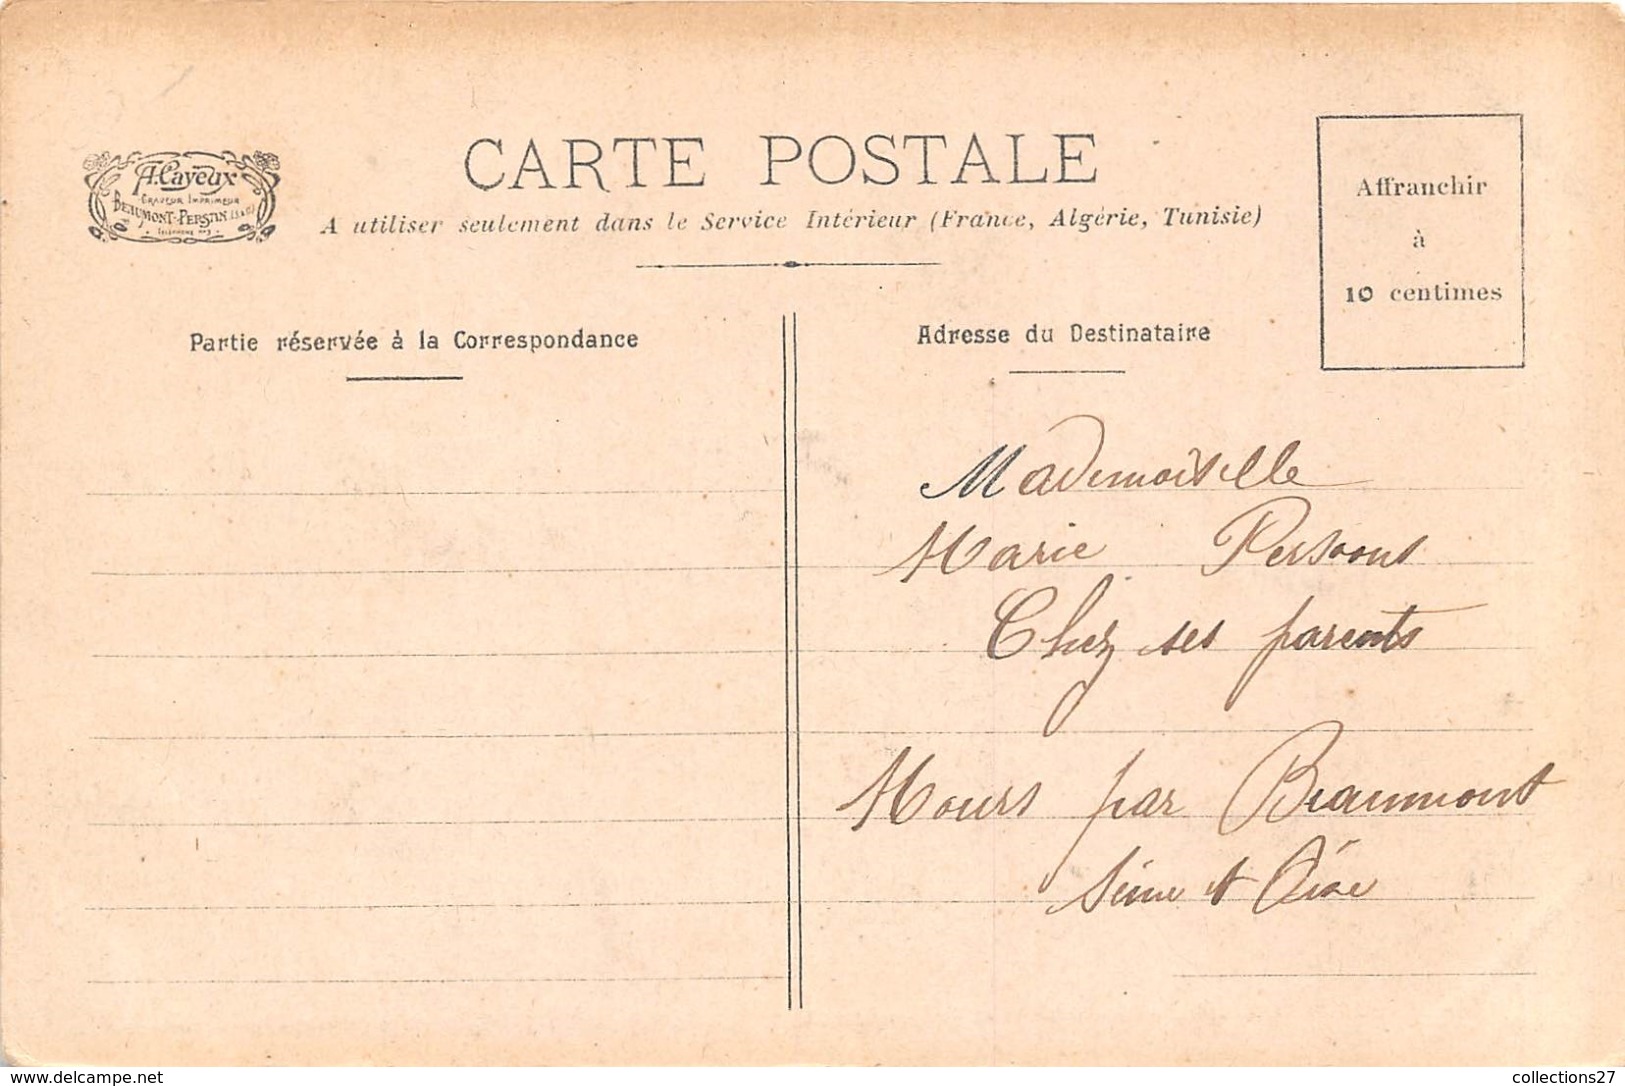 A. Cayeux
GRAVEUR IMPRIMEUR
BEAUMONT-PERSAN (S & O)
TELEPHONE N° 3
CARTE POSTALE
A utiliser seulement dans le Service Intérieur (France, Algérie, Tunisie)
Affranchir
à
10 centimes
Partie réservée à la Correspondance
Adresse du Destinataire
Mademoiselle
Marie Persoons
Chez ses parents
Mours par Beaumont
Seine et Oise
www.delcampe.net
collections27